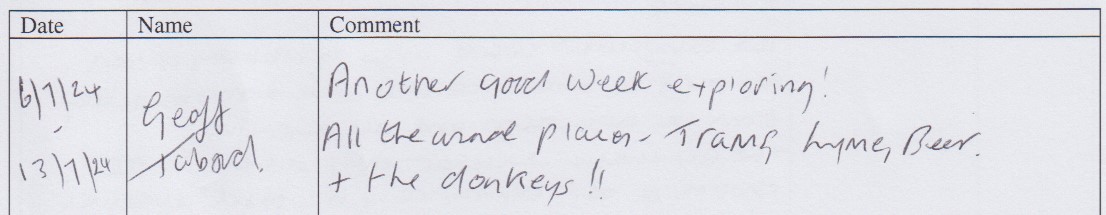 Date Name Comment
6/7/24 Geoff Another good week exploring!
- Tabord. All the usual places - Trams, Lyme, Beer.
13/7/24 + the donkeys!!